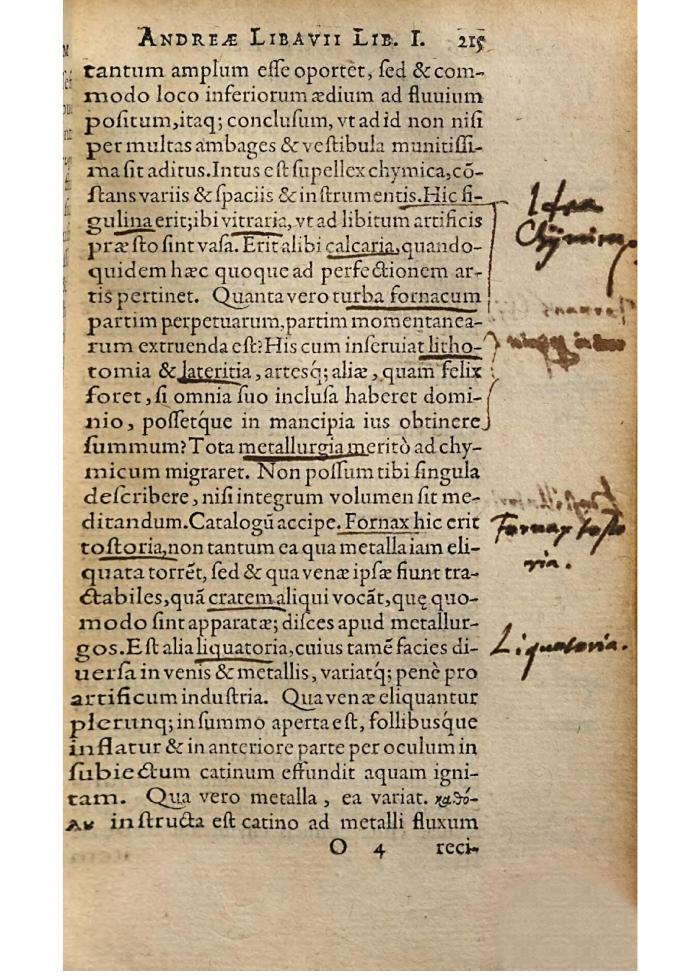 ANDREÆ LIBAVII LIB. I. 215
tantum amplum eſſe oportet, ſed & com-
modo loco inferiorum ædium ad fluuium
poſitum,itaq; concluſum, vt ad id non niſi
per multas ambages & veſtibula munitiſſi-
ma ſit aditus.Intus eſt ſupellex chymica,cō-
ſtans variis & ſpaciis & inſtrumentis.Hic fi-
gulina erit;ibi vitraria, vt ad libitum artificis
præſto ſint vaſa. Erit alibi calcaria,quando-
quidem hæc quoque ad perfectionem ar-
tis pertinet. Quanta vero turba fornacum
partim perpetuarum,partim momentanea-
rum extruenda eſt?His cum inſeruiat litho-
tomia & lateritia, artesq́; aliæ, quam felix
foret, ſi omnia ſuo incluſa haberet domi-
nio, poſſetq́ue in mancipia ius obtinere
ſummum? Tota metallurgia meritò ad chy-
micum migraret. Non poſſum tibi ſingula
deſcribere, niſi integrum volumen ſit me-
ditandum.Catalogū accipe. Fornax hic erit
toſtoria,non tantum ea qua metalla iam eli-
quata torrēt, ſed & qua venæ ipſæ fiunt tra-
ctabiles,quā cratem aliqui vocāt,quę quo-
modo ſint apparatæ; diſces apud metallur-
gos.Eſt alia liquatoria,cuius tamē facies di-
uerſa in venis & metallis, variatq́; penè pro
artificum induſtria. Qua venæ eliquantur
plerunq; in ſummo aperta eſt, follibusq́ue
inflatur & in anteriore parte per oculum in
ſubiectum catinum effundit aquam igni-
tam. Qua vero metalla, ea variat. καθό-
λου inſtructa eſt catino ad metalli fluxum
O 4 reci-
Fornax toſto
ria.
Liquatoria.